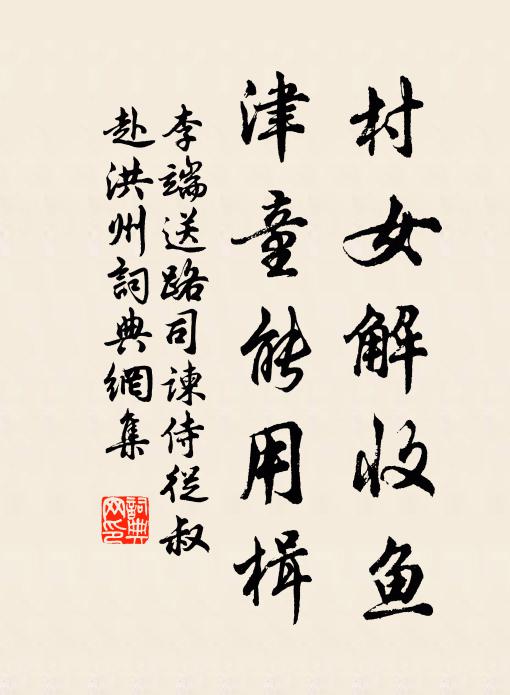 村女解收魚
津童能用楫
李端送路司諫侍從叔
赴洪州詞典網集
詞典網印